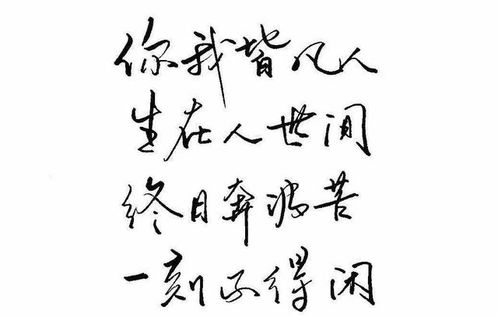 你我皆凡人
生在人世间
终日奔波苦
一刻不得闲